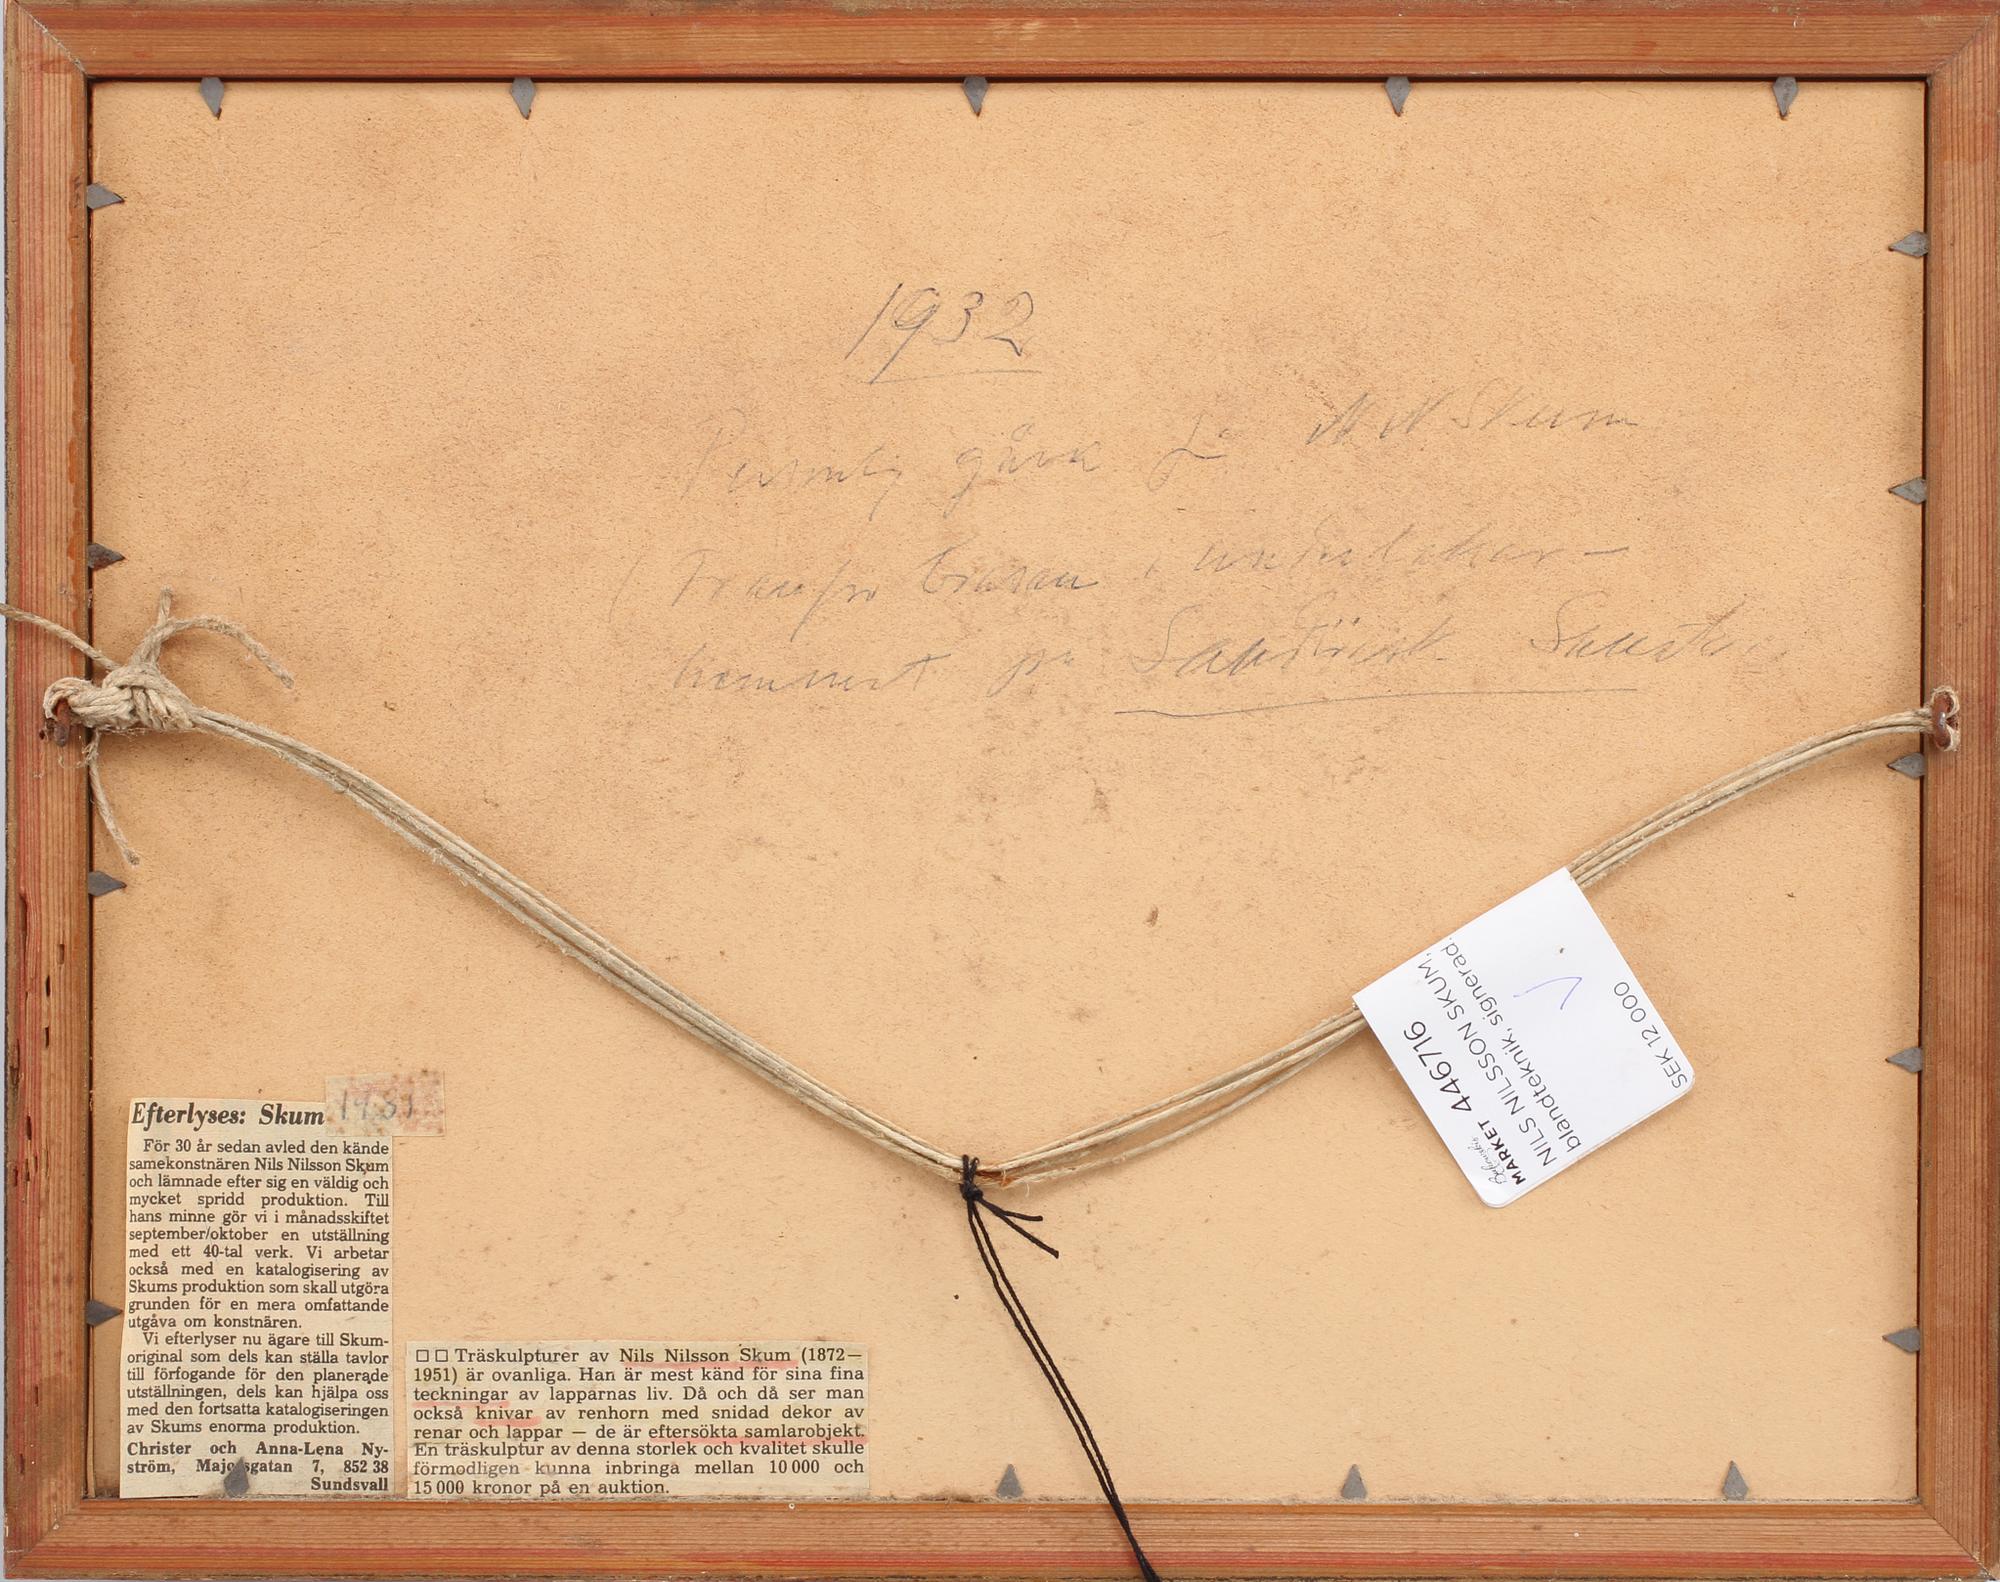 1932
Personlig gåva fr N N Skum
(
på
Efterlyses: Skum
För 30 år sedan avled den kände
samekonstnären Nils Nilsson Skum
och lämnade efter sig en väldig och
mycket spridd produktion. Till
hans minne gör vi i månadsskiftet
september/oktober en utställning
med ett 40-tal verk. Vi arbetar
också med en katalogisering av
Skums produktion som skall utgöra
grunden för en mera omfattande
utgåva om konstnären.
Vi efterlyser nu ägare till Skum-
original som dels kan ställa tavlor
till förfogande för den planerade
utställningen, dels kan hjälpa oss
med den fortsatta katalogiseringen
av Skums enorma produktion.
Christer och Anna-Lena Ny-
ström, Majorsgatan 7, 852 38
Sundsvall
□ □ Träskulpturer av Nils Nilsson Skum (1872—
1951) är ovanliga. Han är mest känd för sina fina
teckningar av lapparnas liv. Då och då ser man
också knivar av renhorn med snidad dekor av
renar och lappar — de är eftersökta samlarobjekt.
En träskulptur av denna storlek och kvalitet skulle
förmodligen kunna inbringa mellan 10 000 och
15 000 kronor på en auktion.
MARKET 446716
NILS NILSSON SKUM,
blandteknik, signerad.
SEK 12 000